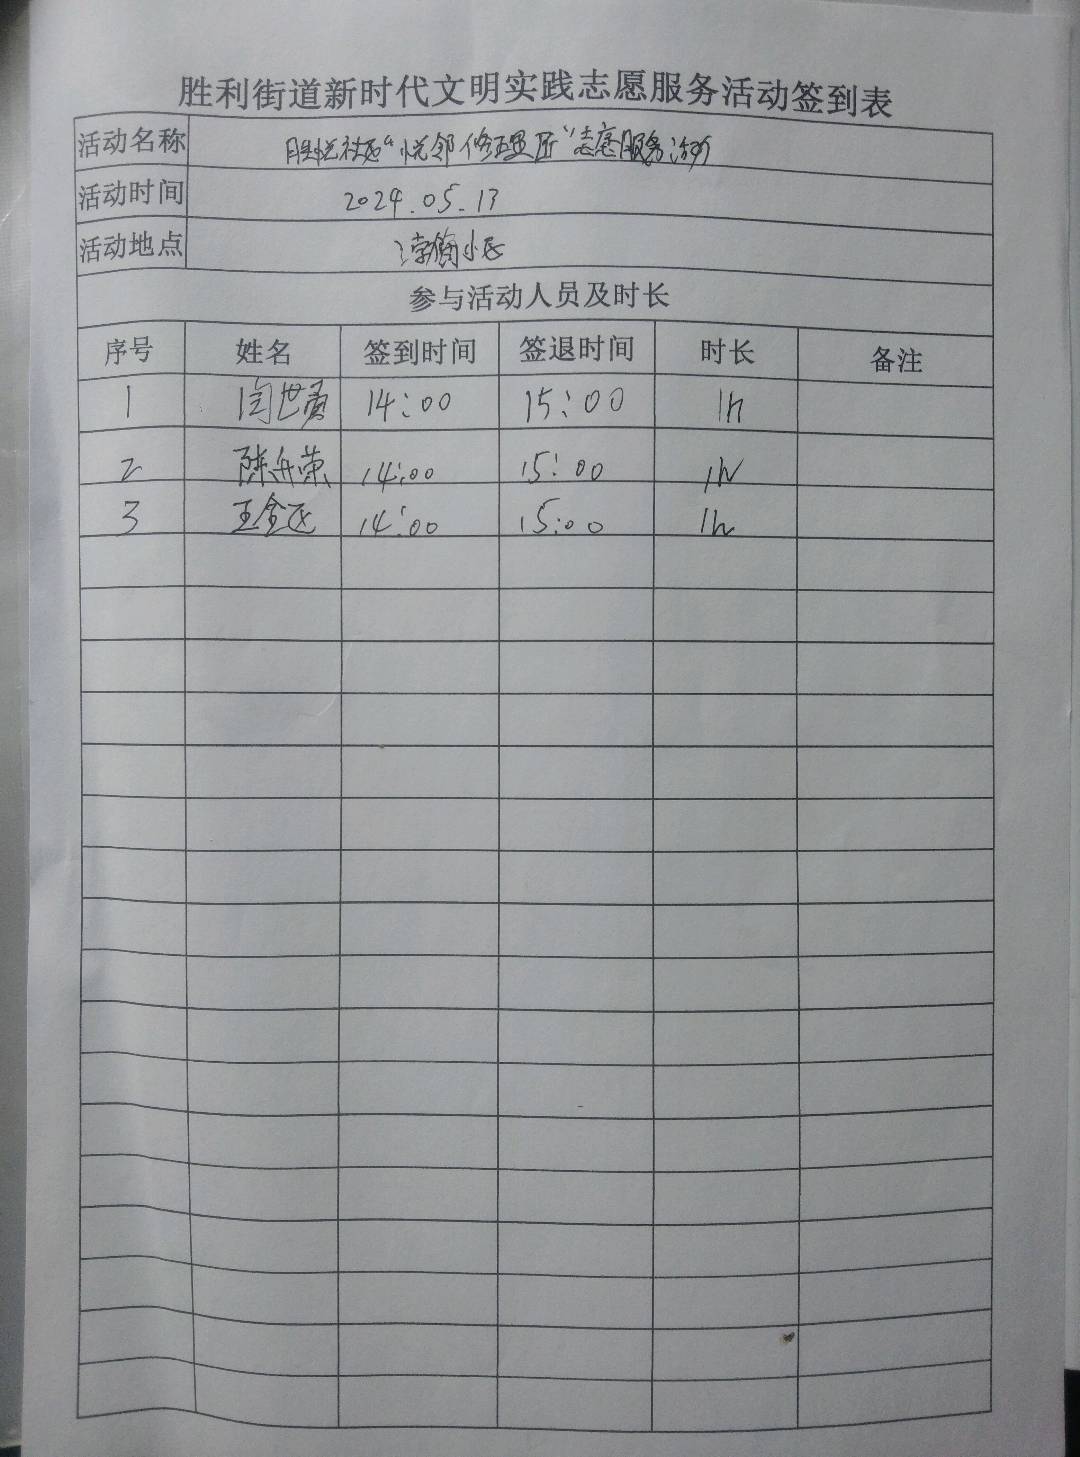 胜利街道新时代文明实践志愿服务活动签到表
活动名称 胜悦社区“悦邻修理匠”志愿服务活动
活动时间 2024.05.13
活动地点 渤海小区
参与活动人员及时长
序号 姓名 签到时间 签退时间 时长 备注
1 闫世勇 14:00 15:00 1h
2 陈舟荣 14:00 15:00 1h
3 王金 14:00 15:00 1h